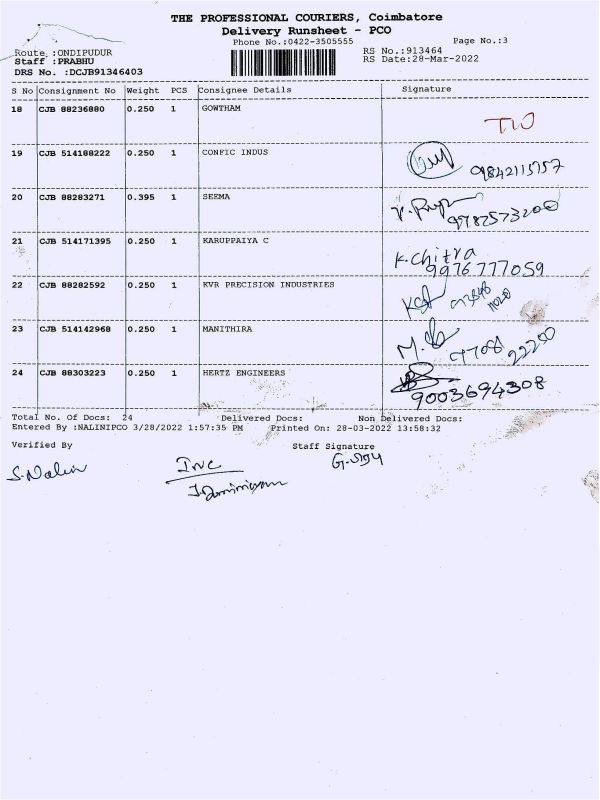 THE PROFESSIONAL COURIERS, Coimbatore
Delivery Runsheet - PCO
Phone No.:0422-3505555 Page No.:3
Route :ONDIPUDUR RS No.:913464
Staff :PRABHU RS Date:28-Mar-2022
DRS No. :DCJB91346403
S No Consignment No Weight PCS Consignee Details Signature
18 CJB 88236880 0.250 1 GOWTHAM
19 CJB 514188222 0.250 1 CONFIC INDUS
9842115757
20 CJB 88283271 0.395 1 SEEMA
9787573200
21 CJB 514171395 0.250 1 KARUPPAIYA C
K. Chitra
9976777059
22 CJB 88282592 0.250 1 KVR PRECISION INDUSTRIES
23 CJB 514142968 0.250 1 MANITHIRA
97708 22200
24 CJB 88303223 0.250 1 HERTZ ENGINEERS
9003694308
Total No. Of Docs: 24 Delivered Docs: Non Delivered Docs:
Entered By :NALINIPCO 3/28/2022 1:57:35 PM Printed On: 28-03-2022 13:58:32
Verified By Staff Signature
S. Nalin